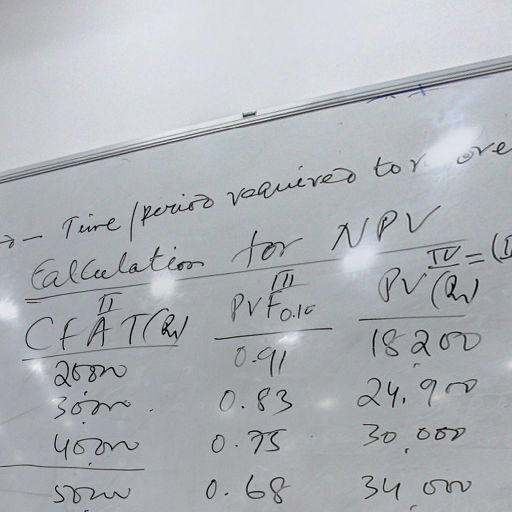 - Time/period required for
Calculation for NPV
II III IV = (I
CFAT(Rs) PVF0.10 PV(Rs)
20000 0.91 18200
30000 0.83 24,900
40000 0.75 30,000
50000 0.68 34,000